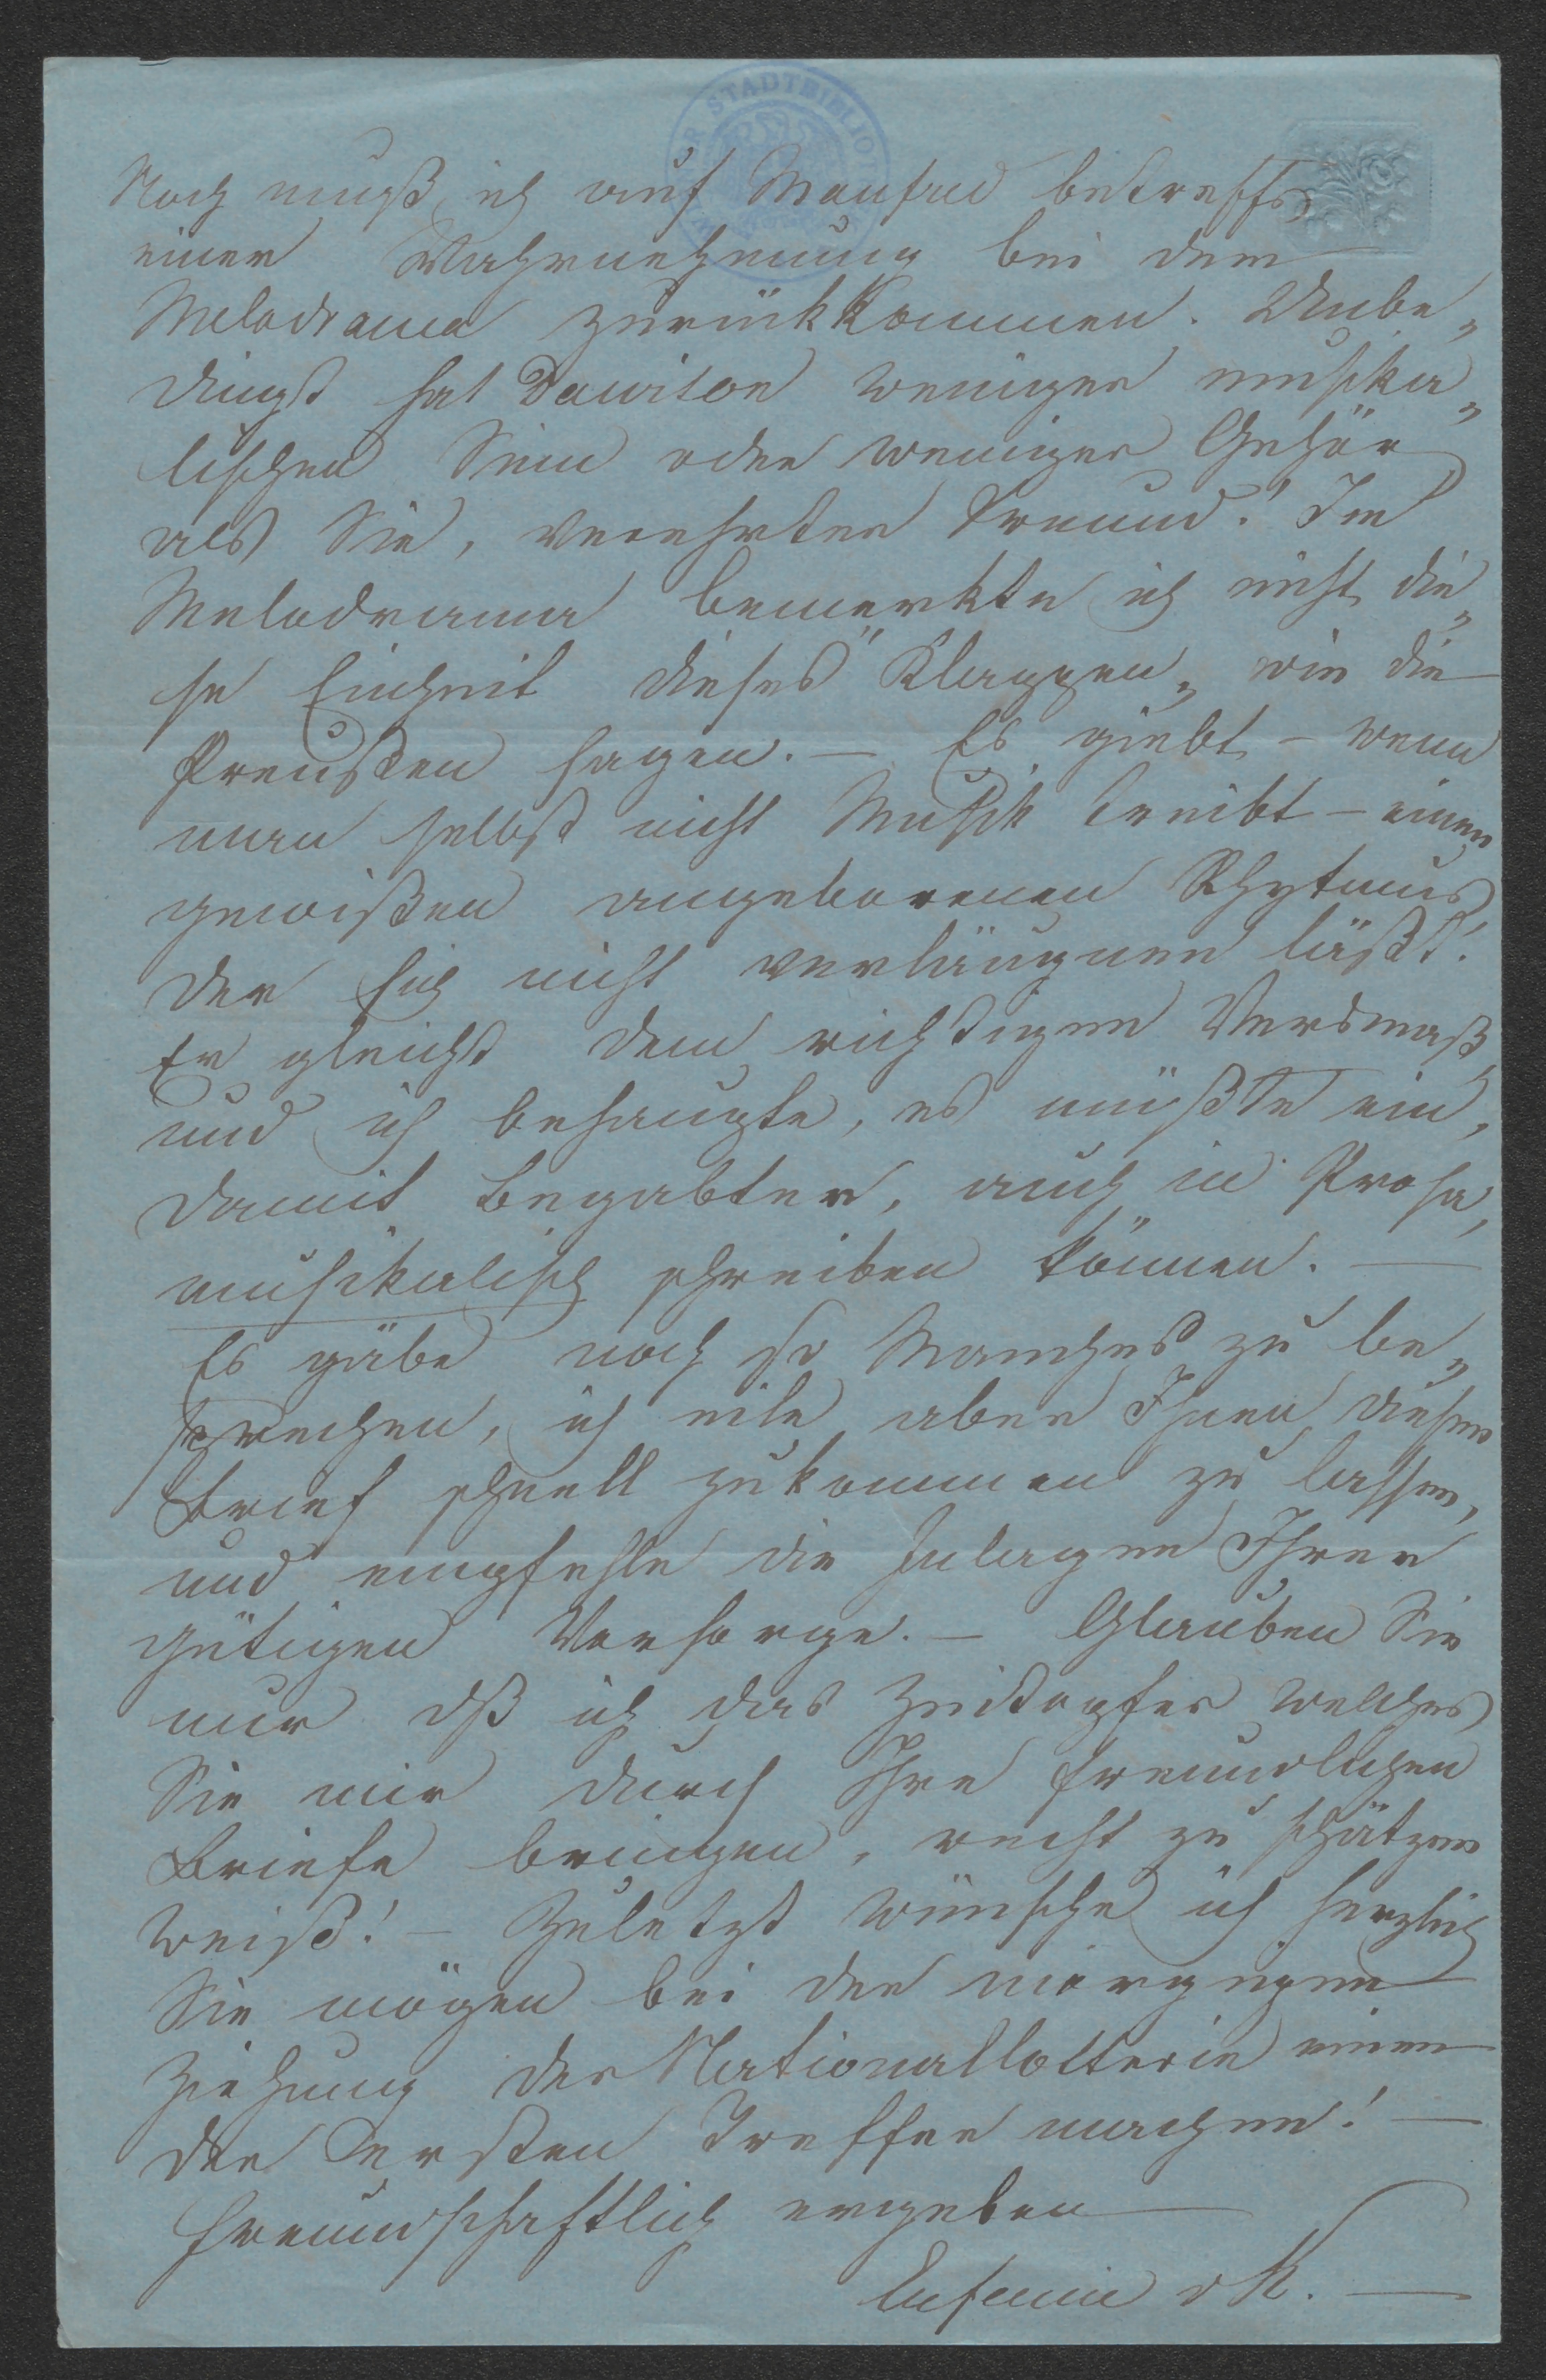 STADTBIBLIOT
Noch muß ich auf Manfred betreffs
einer Wahrnehmung bei dem
Melodrama zurückkommen. Unbe„
dingt hat Dawison weniger musika„
lischen Sinn oder weniger Gehör
als Sie, verehrter Freund! Im
Melodrama bemerkte ich nicht die„
se Einheit dieses "Klappen„ wie die
Preußen sagen. – Es giebt – wenn
man selbst nicht Musik treibt – einen
gewißen angeborenen Rhytmus
der sich nicht verläugnen läßt!
Er gleicht dem richtigen Versmaß
und ich behaupte, es müßte ein,
damit Begabter, auch in Prosa,
musikalisch schreiben können. —
Es gäbe noch so Manches zu be„
sprechen, ich eile aber Ihnen diesen
Brief schnell zukommen zu lassen,
und empfehle die Inlagen Ihrer
gütigen Vorsorge. – Glauben Sie
nur dß ich das Zeitopfer welches
Sie mir durch Ihre freundlichen
Briefe bringen, recht zu schätzen
weiß! – Zuletzt wünsche ich herzlich
Sie mögen bei der morgigen
Ziehung der Nationallotterie einen
der ersten Treffer machen! —
Freundschaftlich ergeben
Eufemia v K. —